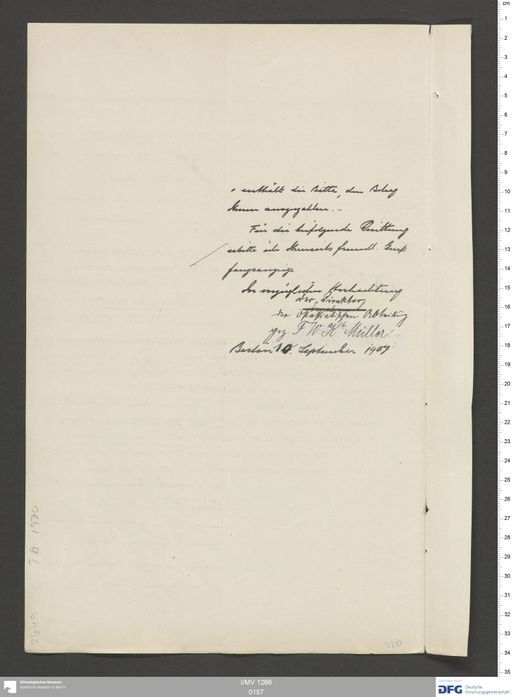 enthält die Bitte, den Betrag
Ihnen auszuzahlen. -
Für die beifolgende Quittung
erbitte ich Ihrerseits freundl. Emp
fangsanzeige
In vorzüglicher Hochachtung
Der Direktor
der Ostasiatischen Abteilung
gez. F. W. K. Müller
Berlin 10. September 1907
I B 1970
220
I/MV 1266
0157
Ethnologisches Museum
Staatliche Museen zu Berlin
DFG Deutsche
Forschungsgemeinschaft
cm
1
2
3
4
5
6
7
8
9
10
11
12
13
14
15
16
17
18
19
20
21
22
23
24
25
26
27
28
29
30
31
32
33
34
35